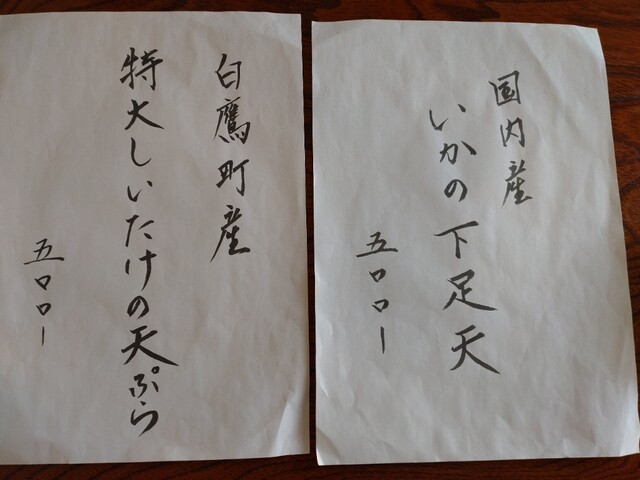 国内産
いかの下足天
五〇〇ー
白鷹町産
特大しいたけの天ぷら
五〇〇ー